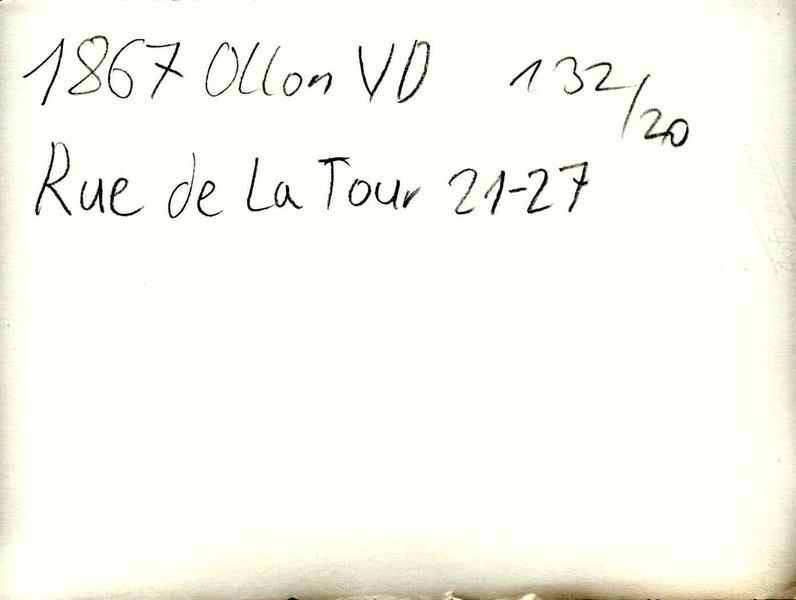 1867 Ollon VD 132/20
Rue de La Tour 21-27